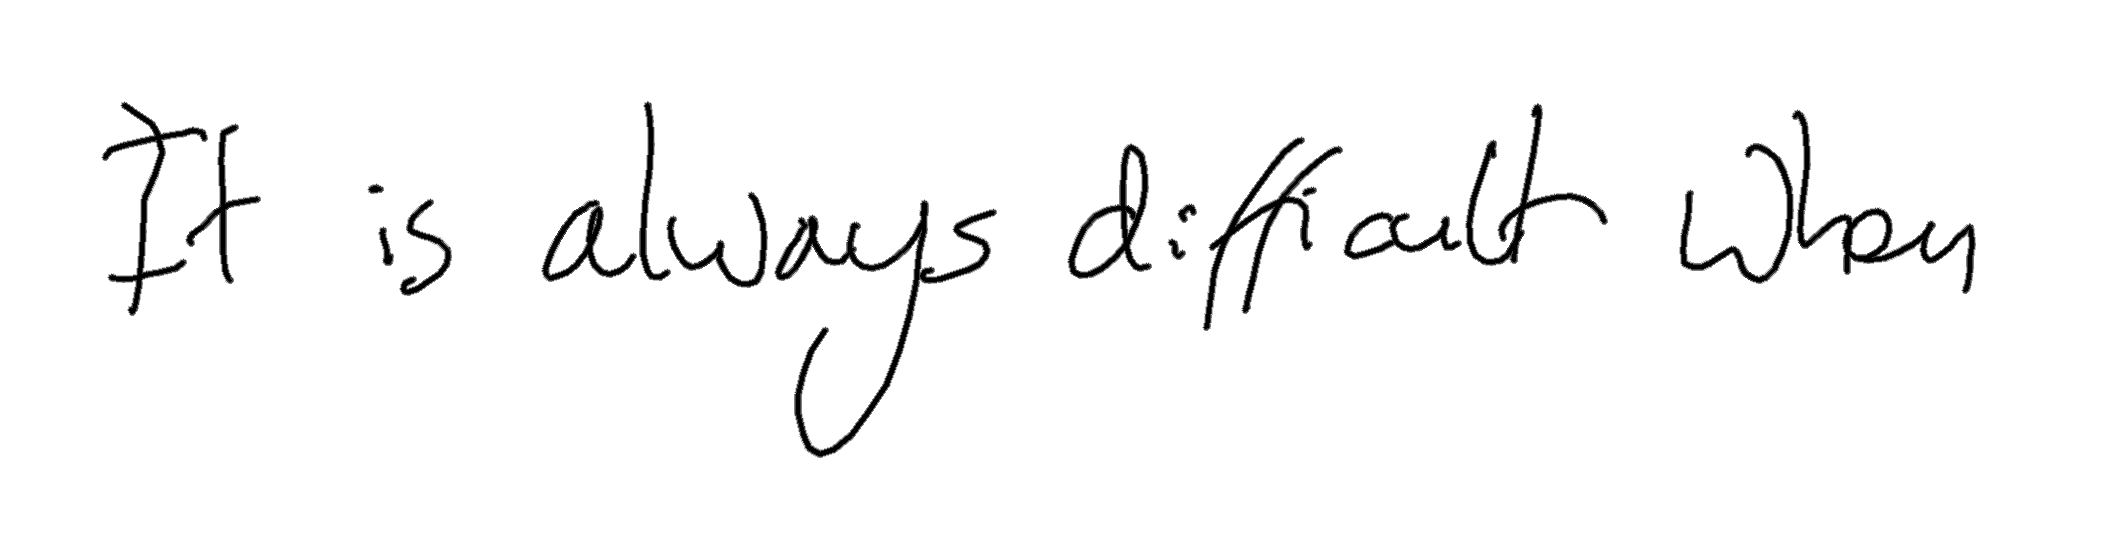 It is always difficult when